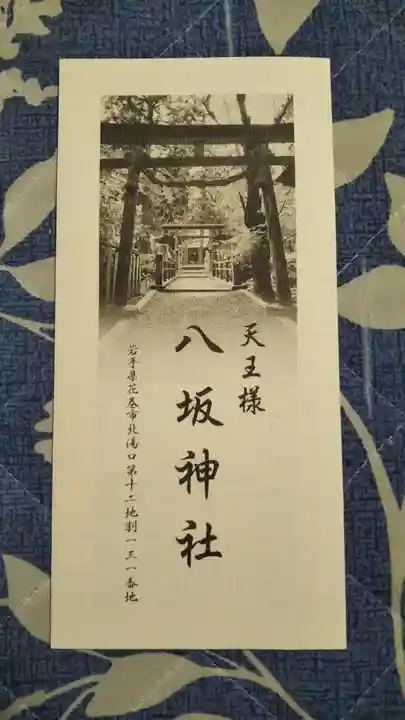 天王様
八坂神社
岩手県花巻市北湯口第十二地割一三一番地